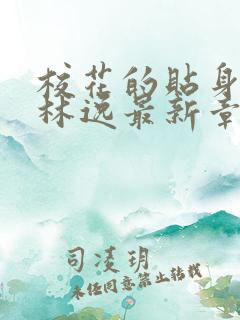 校花的贴身
林逸最新章
司凌玥
未经同意禁止转载